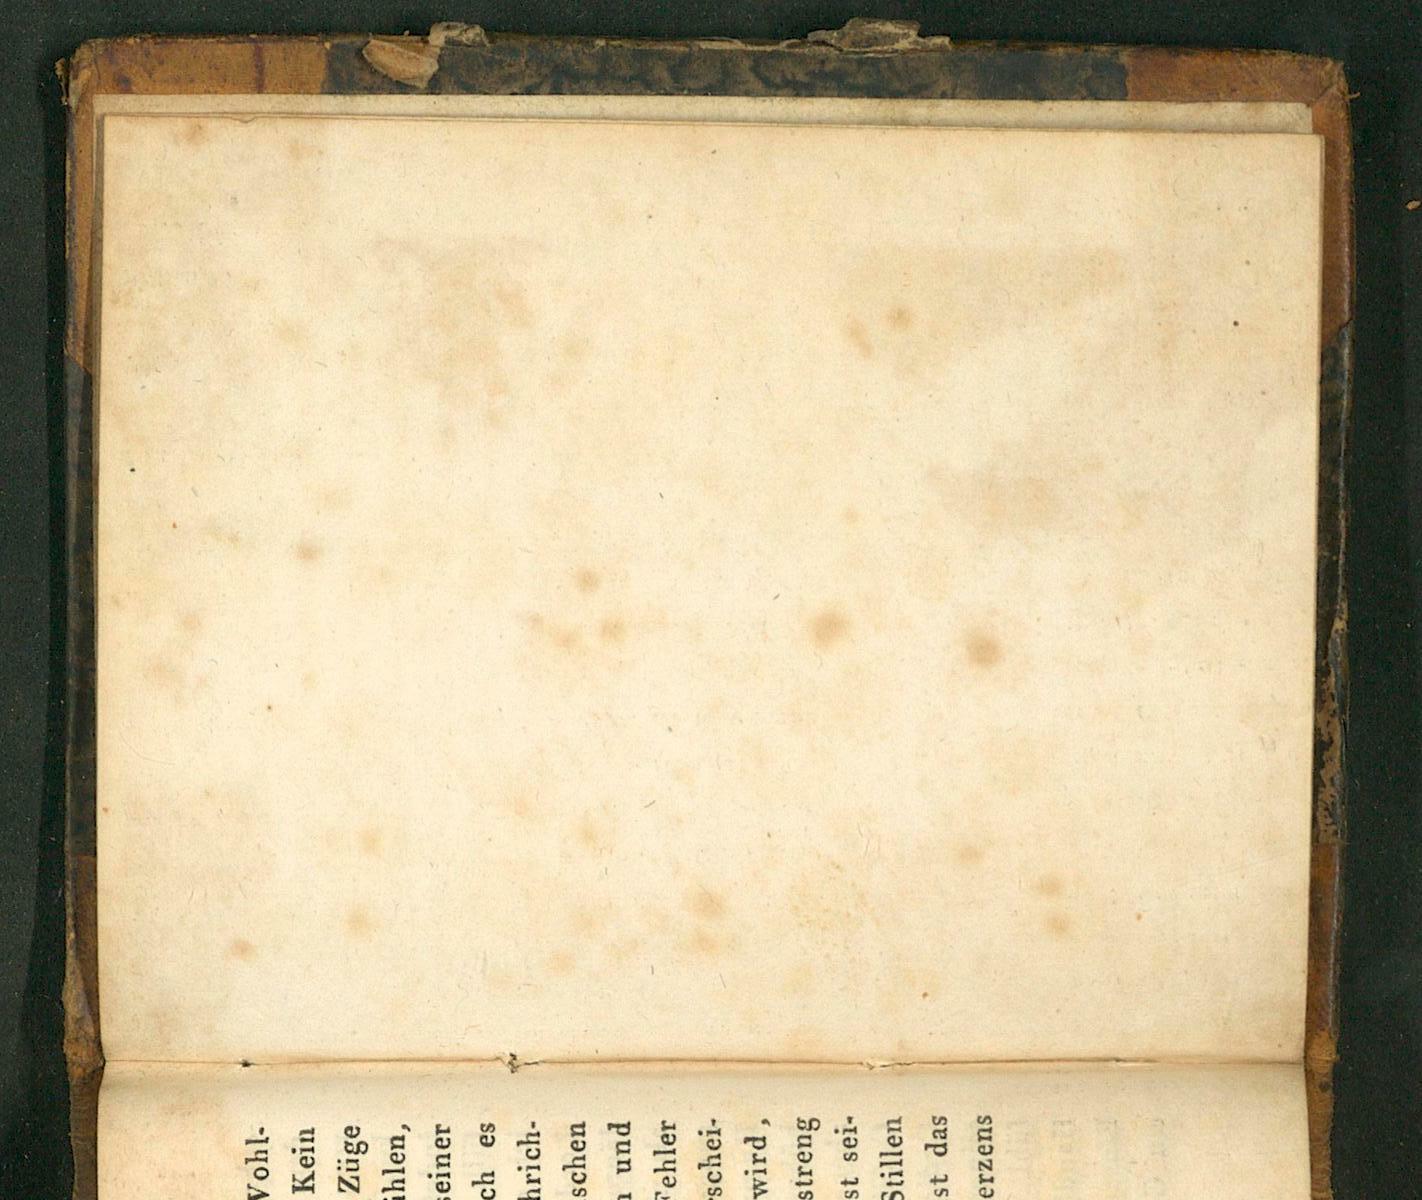 Wohl-
Kein
Züge
ühlen,
seiner
ch es
hrich-
schen
n und
Fehler
rschei-
wird,
streng
st sei-
Stillen
st das
erzens